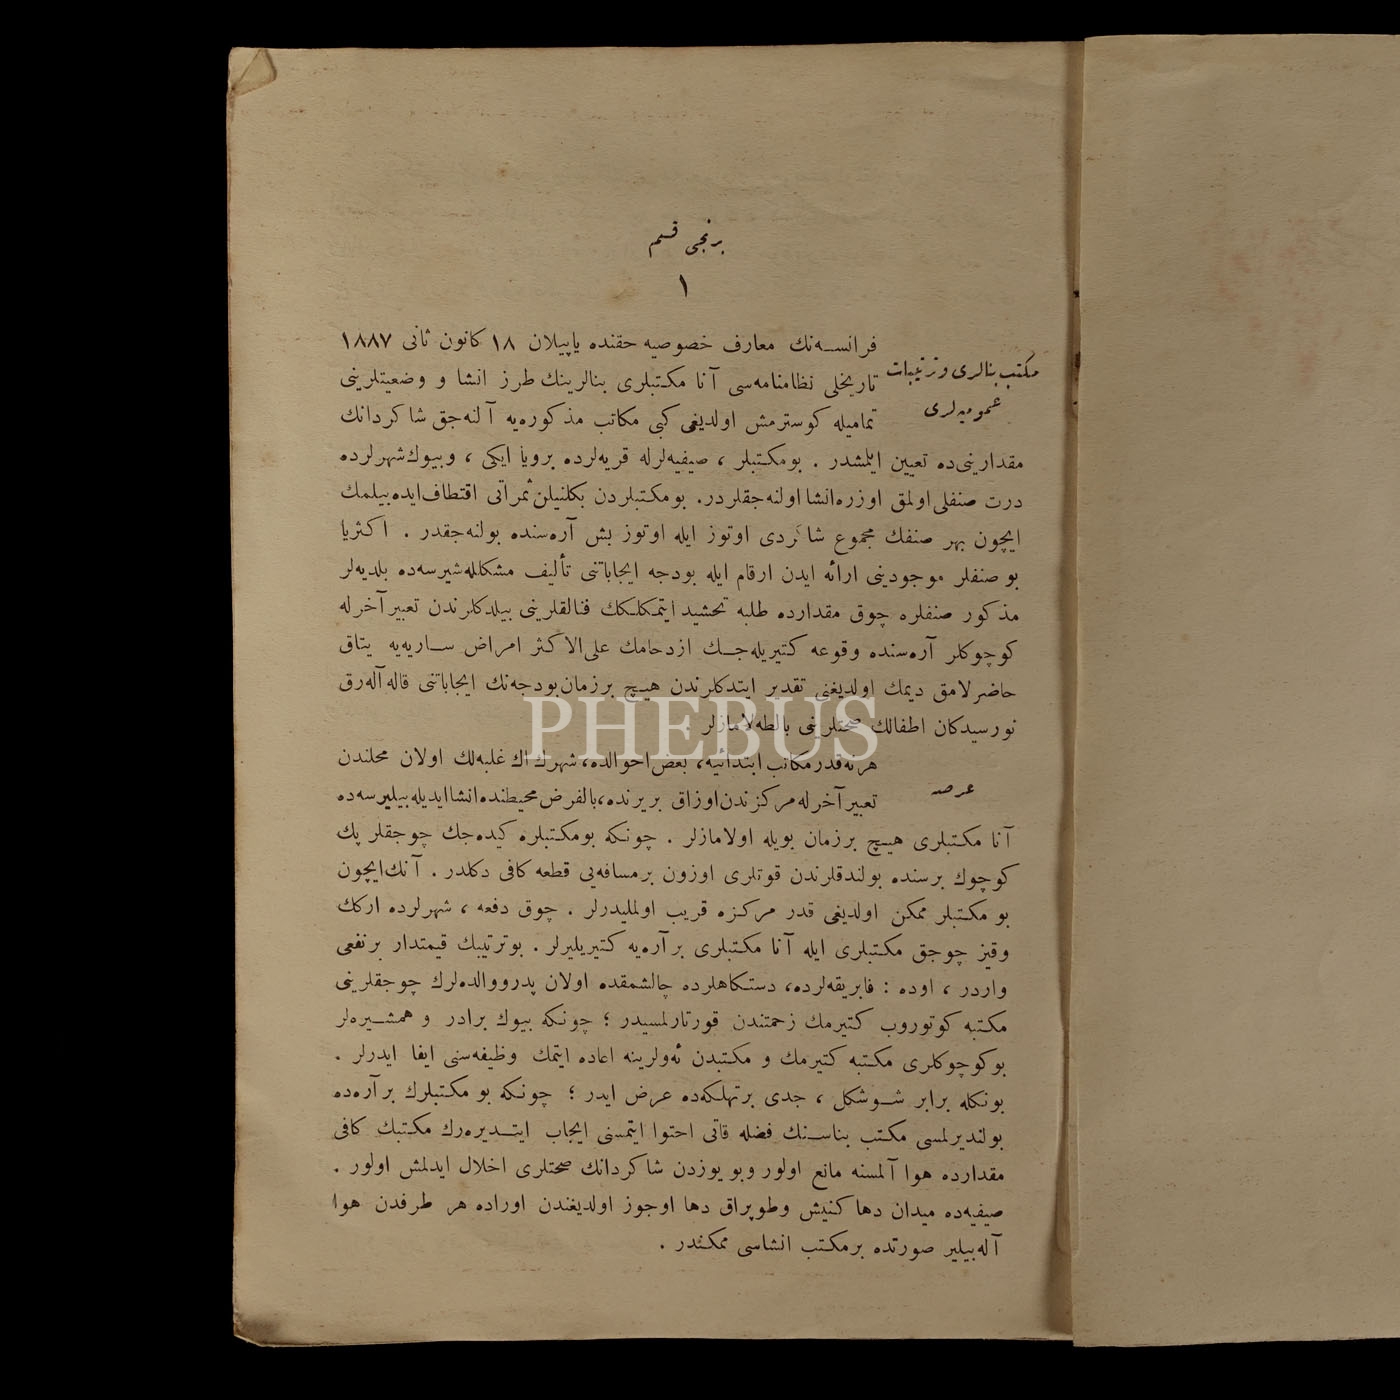 برنجی قسم
١
مكتب بنالری و ترتیبات
عمومیه‌لری
فرانسه‌نك معارف خصوصیه حقنده یاپیلان ١٨ كانون ثانی ١٨٨٧
تاریخلی نظامنامه‌سی آنا مكتبلری بنالرینك طرز انشا و وضعیتلرینی
تمامیله كوسترمش اولدیغی كبی مكاتب مذكوره‌یه آلنه‌جق شاكردانك
مقدارینی‌ده تعیین ایلمشدر . بومكتبلر ، صیفیه‌لرله قریه‌لرده برویا ایكی ، وبیوك شهرلرده
درت صنفلی اولمق اوزره انشا اولنه‌جقلردر. بومكتبلردن بكلنیلن ثمراتی اقتطاف ایده‌بیلمك
ایچون بهر صنفك مجموع شاكردی اوتوز ایله اوتوز بش آره‌سنده بولنه‌جقدر . اكثریا
بو صنفلر موجودینی ارائه ایدن ارقام ایله بودجه ایجاباتنی تألیف مشكلله‌شیرسه‌ده بلدیه‌لر
مذكور صنفلره چوق مقدارده طلبه تحشید ایتمكلكك فنالقلرینی بیلدكلرندن تعبیر آخرله
كوچوكلر آره‌سنده وقوعه كتیریله‌جك ازدحامك علی‌الاكثر امراض ساریه‌یه یتاق
حاضرلامق دیمك اولدیغنی تقدیر ایتدكلرندن هیچ برزمان بودجه‌نك ایجاباتنی قاله آله‌رق
نورسیدكان اطفالك صحتلرینی بالطه‌لامازلر .
عرصه
هرنه‌قدر مكاتب ابتدائیه، بعض احوالده، شهرك اك غلبه‌لك اولان محلندن
تعبیر آخرله مركزندن اوزاق بریرنده، بالفرض محیطنده انشا ایدیله‌بیلیرسه‌ده
آنا مكتبلری هیچ برزمان بویله اولامازلر . چونكه بومكتبلره كیده‌جك چوجقلر پك
كوچوك برسنده بولندقلرندن قوتلری اوزون برمسافه‌یی قطعه كافی دكلدر . آنك ایچون
بو مكتبلر ممكن اولدیغی قدر مركزه قریب اولملیدرلر . چوق دفعه ، شهرلرده اركك
وقیز چوجق مكتبلری ایله آنا مكتبلری بر آره‌یه كتیریلیرلر . بوترتیبك قیمتدار برنفعی
واردر ، اوده : فابریقه‌لرده، دستكاهلرده چالشمقده اولان پدرووالده‌لرك چوجقلرینی
مكتبه كوتوروب كتیرمك زحمتندن قورتارلمسیدر ؛ چونكه بیوك برادر و همشیره‌لر
بوكوچوكلری مكتبه كتیرمك و مكتبدن ئه‌ولرینه اعاده ایتمك وظیفه‌سنی ایفا ایدرلر .
بونكله برابر شوشكل ، جدی برتهلكه‌ده عرض ایدر ؛ چونكه بو مكتبلرك بر آره‌ده
بولندیرلمسی مكتب بناسنك فضله قاتی احتوا ایتمسنی ایجاب ایتدیره‌رك مكتبك كافی
مقدارده هوا آلمسنه مانع اولور وبو یوزدن شاكردانك صحتلری اخلال ایدلمش اولور .
صیفیه‌ده میدان دها كنیش وطوپراق دها اوجوز اولدیغندن اوراده هر طرفدن هوا
آله‌بیلیر صورتده برمكتب انشاسی ممكندر .
PHEBUS